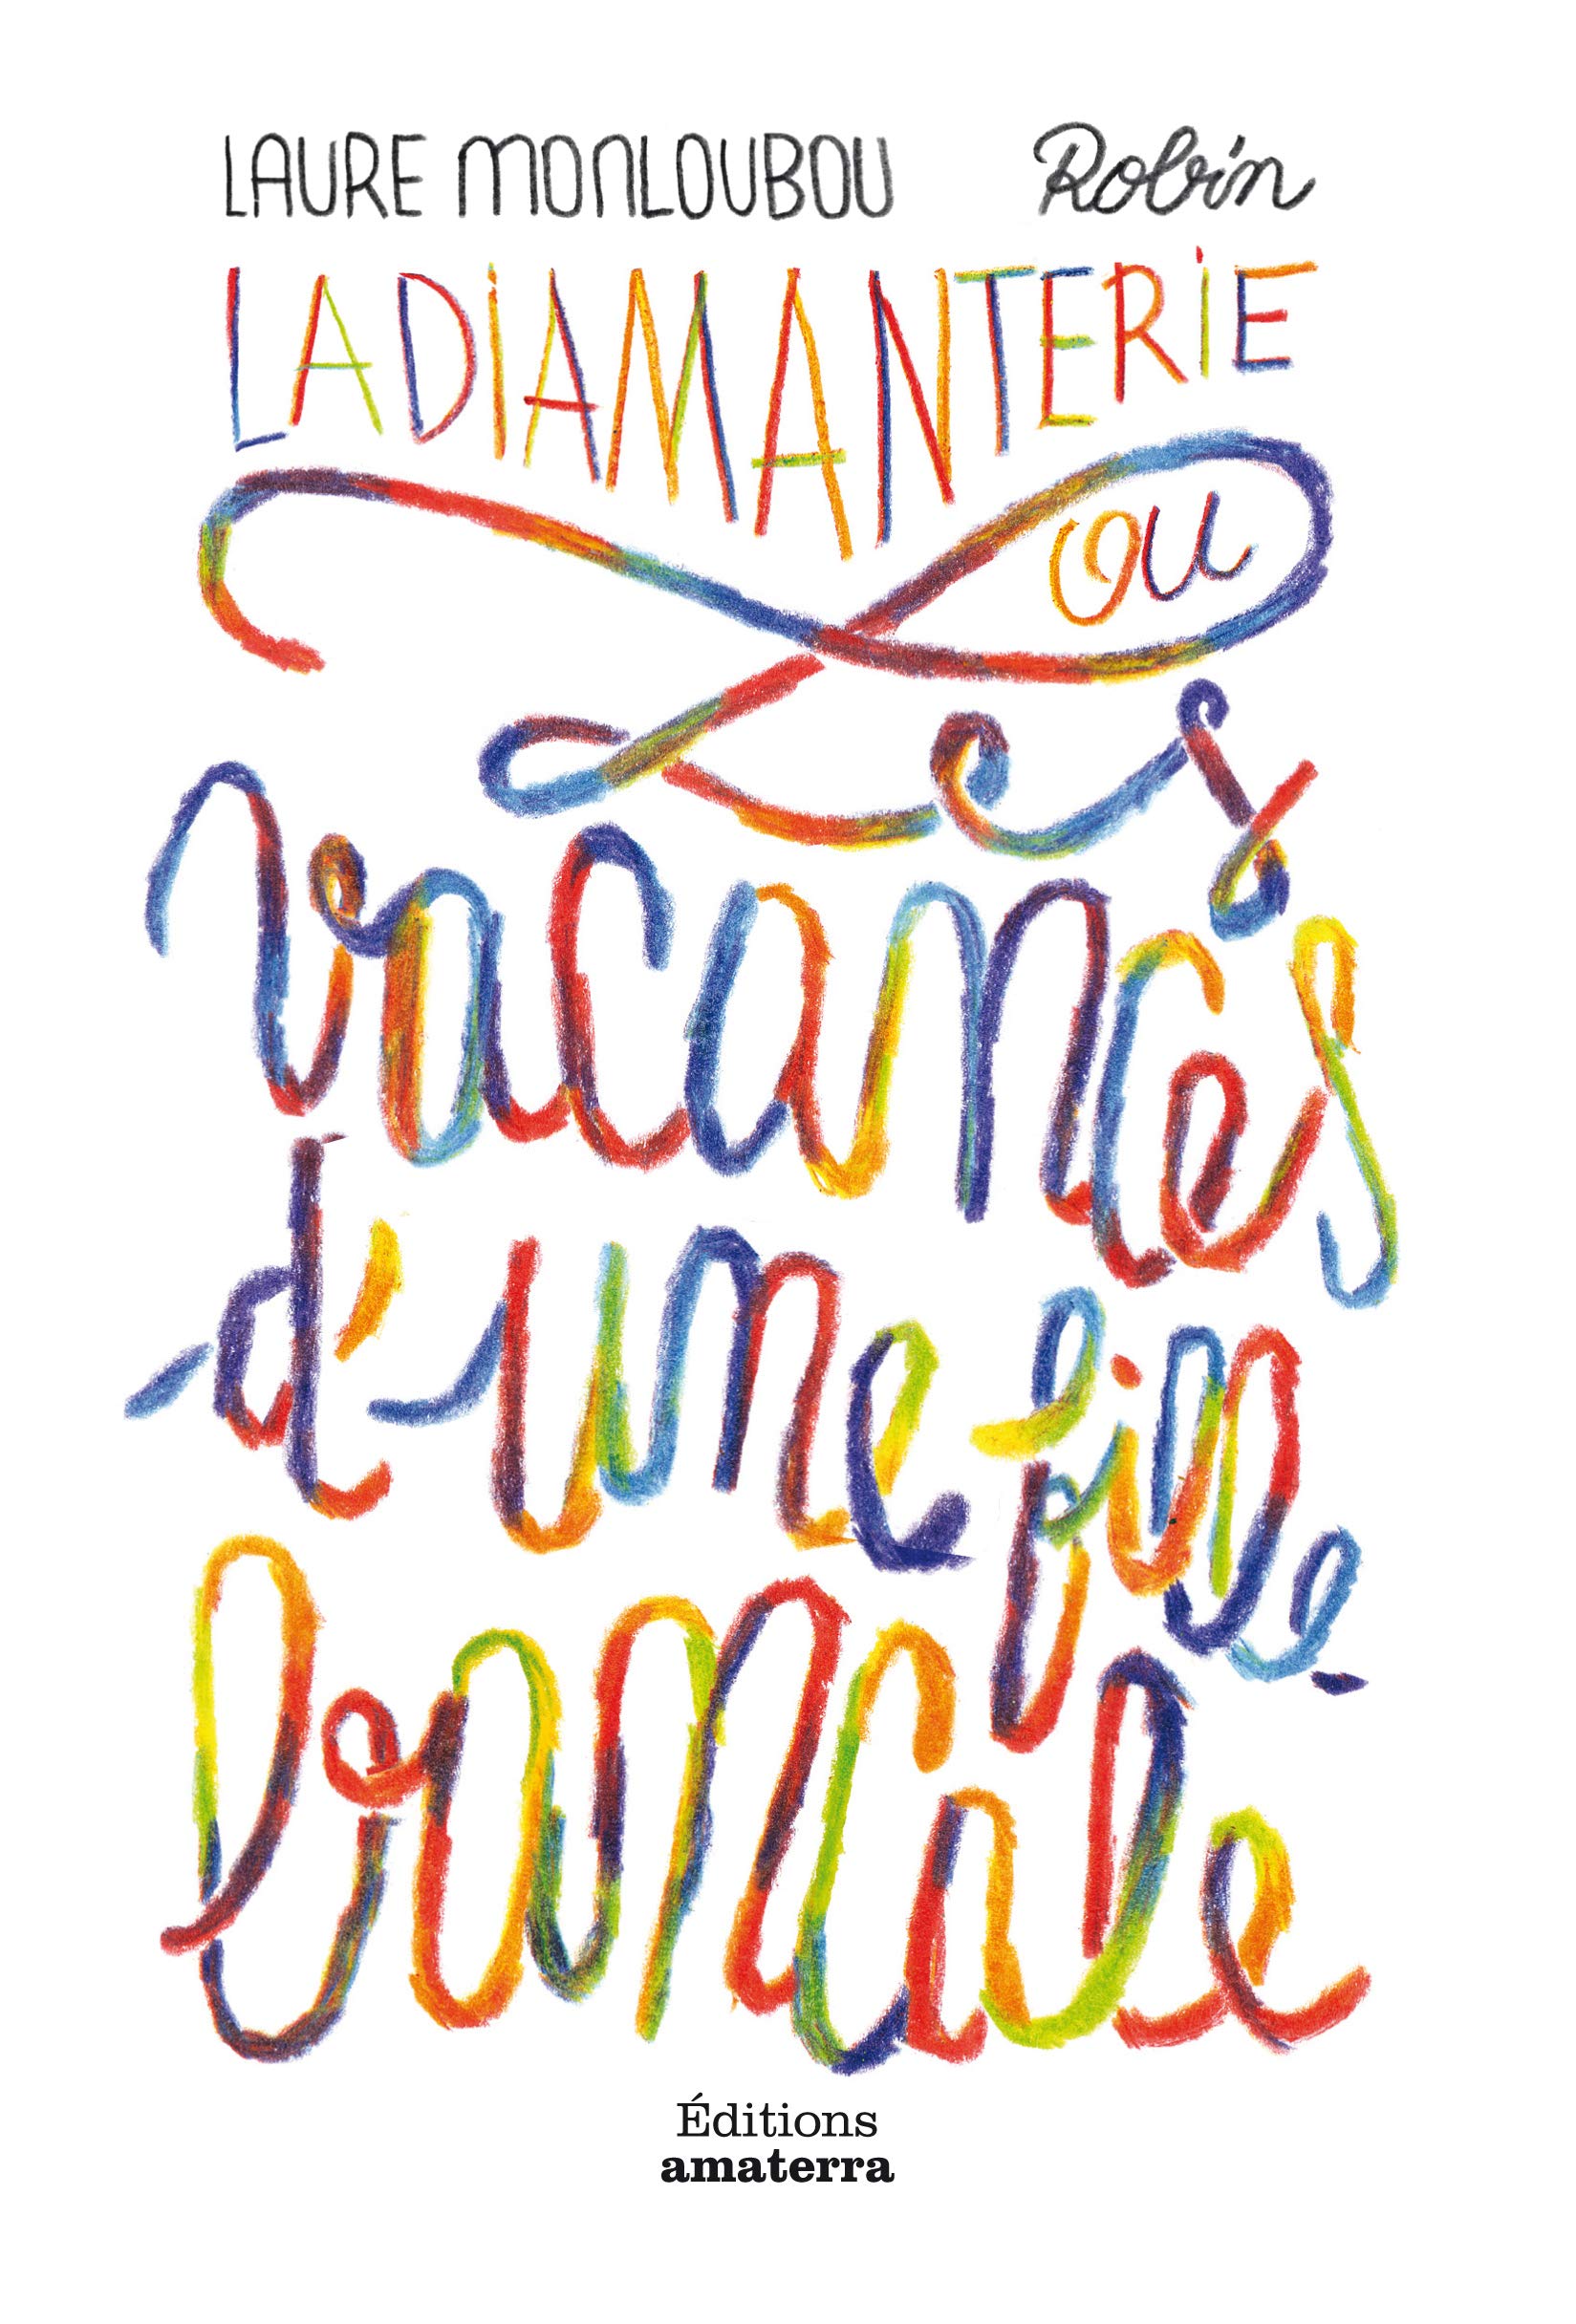 LAURE MONLOUBOU Robin
LA DIAMANTERIE
ou
Les
vacances
d'une fille
bancale
Éditions
amaterra